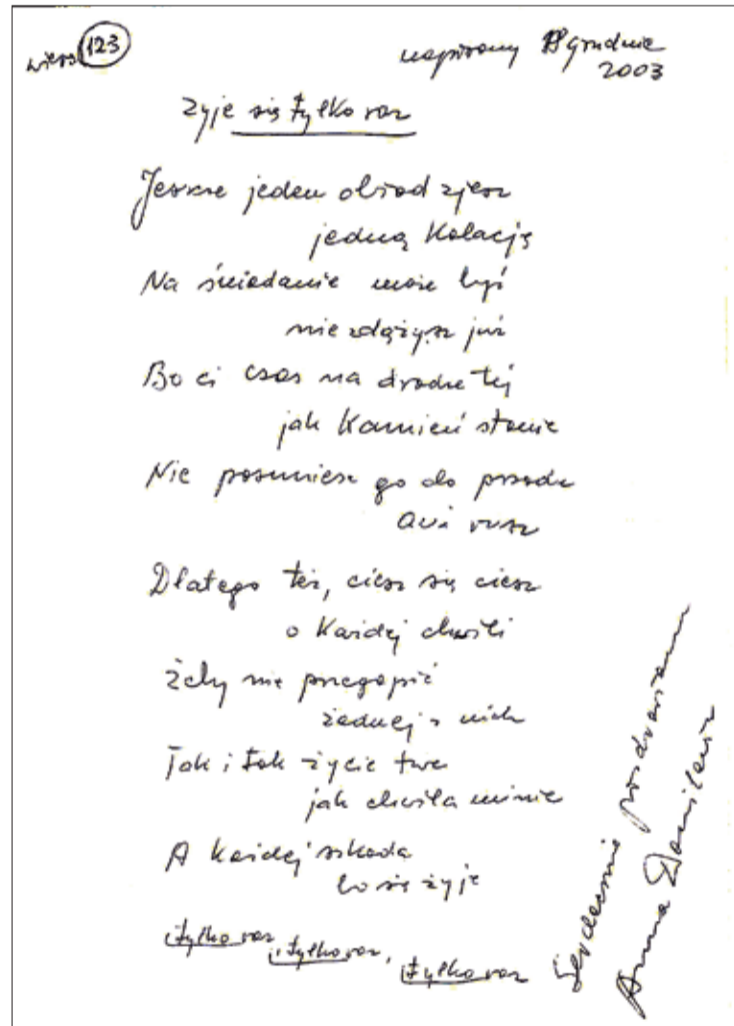 wiersz 123
napisany 18 grudnia
2003
Żyje się tylko raz
Jeszcze jeden obiad zjesz
jedną kolację
Na śniadanie może być
nie zdążysz już
Bo ci czas na drodze tej
jak kamień stanie
Nie posuniesz go do przodu
ani rusz
Dlatego też, ciesz się ciesz
o każdej chwili
Żeby nie przegapić
żadnej z nich
Tak i tak życie twe
jak chwila minie
A każdej szkoda
bo się żyje
tylko raz, tylko raz, tylko raz
Serdecznie pozdrawiam
Anna